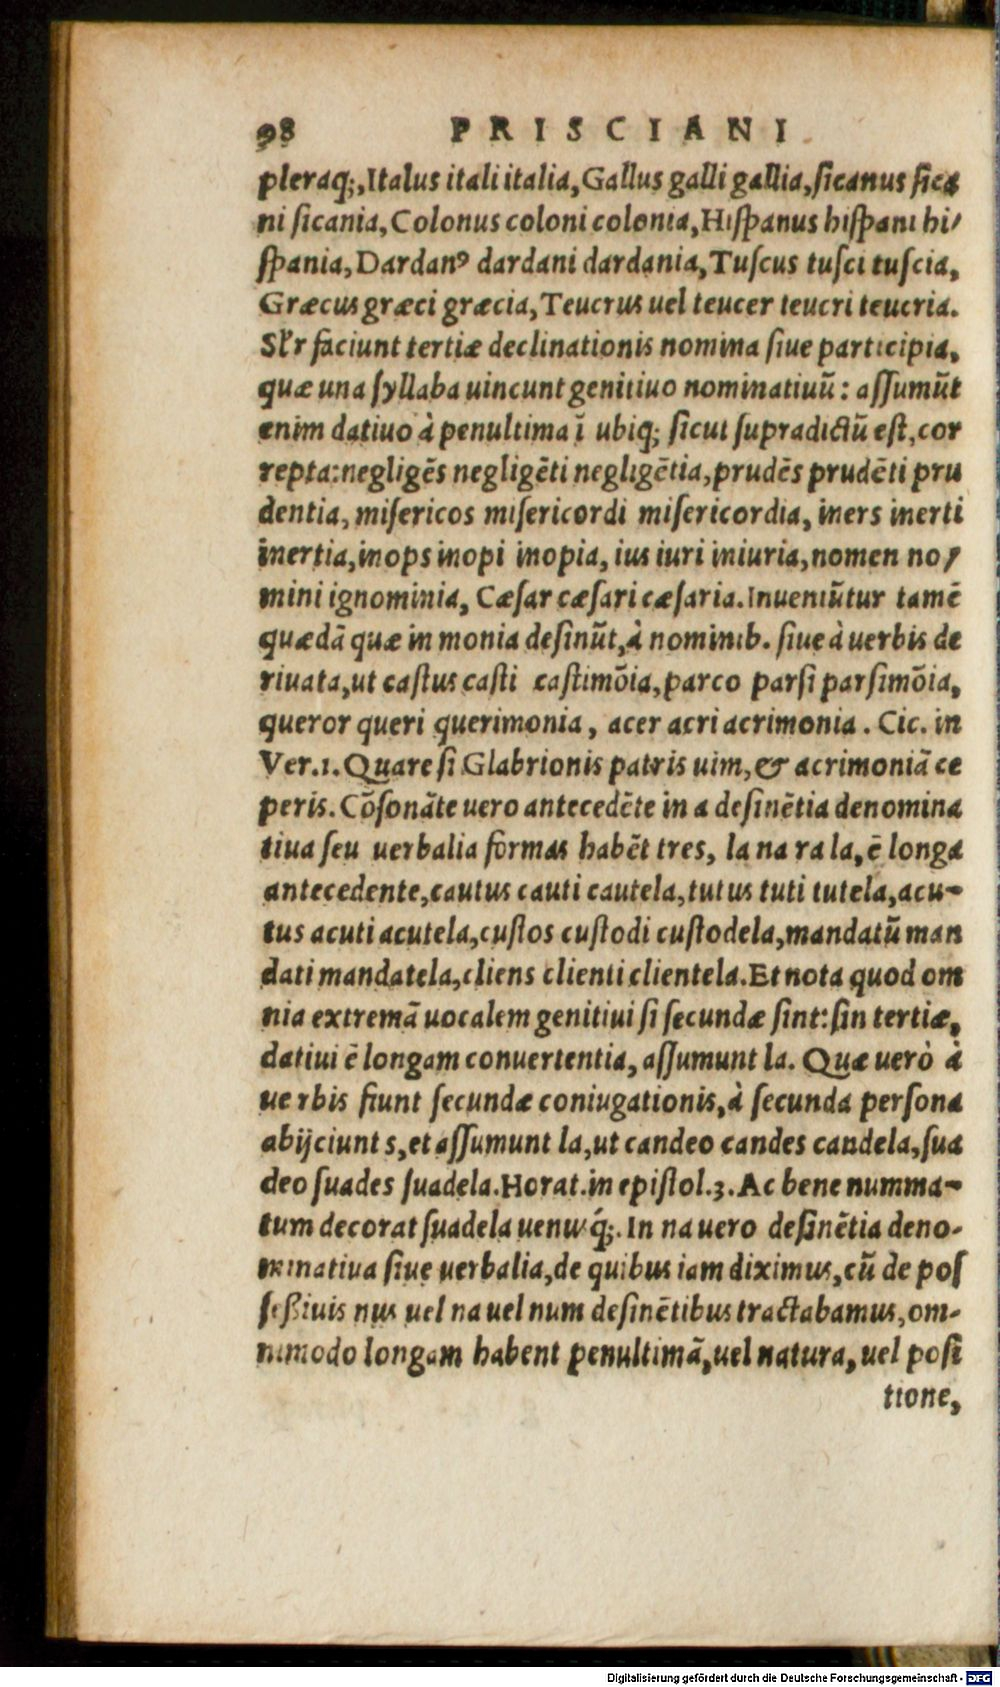 98 PRISCIANI
pleraq;, Italus itali italia, Gallus galli gallia, ſicanus ſica
ni ſicania, Colonus coloni colonia, Hiſpanus hiſpani hi/
ſpania, Dardanꝰ dardani dardania, Tuſcus tuſci tuſcia,
Græcus græci græcia, Teucrus uel teucer teucri teucria.
Sĺr faciunt tertiæ declinationis nomina ſiue participia,
quæ una ſyllaba uincunt genitiuo nominatiuũ: aſſumũt
enim datiuo à penultima ĩ ubiq; ſicut ſupradictũ eſt, cor
repta: negligẽs negligẽti negligẽtia, prudẽs prudẽti pru
dentia, miſericos miſericordi miſericordia, iners inerti
inertia, inops inopi inopia, ius iuri iniuria, nomen no/
mini ignominia, Cæſar cæſari cæſaria. Inueniũtur tamẽ
quædã quæ in monia deſinũt, à nominib. ſiue à uerbis de
riuata, ut caſtus caſti caſtimõia, parco parſi parſimõia,
queror queri querimonia, acer acri acrimonia. Cic. in
Ver.1. Quare ſi Glabrionis patris uim, & acrimoniã ce
peris. Cõſonãte uero antecedẽte in a deſinẽtia denomina
tiua ſeu uerbalia formas habẽt tres, la na ra la, ẽ longa
antecedente, cautus cauti cautela, tutus tuti tutela, acu-
tus acuti acutela, cuſtos cuſtodi cuſtodela, mandatũ man
dati mandatela, cliens clienti clientela. Et nota quod om
nia extremã uocalem genitiui ſi ſecundæ ſint: ſin tertiæ,
datiui ẽ longam conuertentia, aſſumunt la. Quæ uerò à
uerbis fiunt ſecundæ coniugationis, à ſecunda perſona
abijciunt s, et aſſumunt la, ut candeo candes candela, ſua
deo ſuades ſuadela. Horat. in epiſtol.3. Ac bene numma-
tum decorat ſuadela uenuſq́;. In na uero deſinẽtia deno-
minatiua ſiue uerbalia, de quibus iam diximus, cũ de poſ
ſeßiuis nus uel na uel num deſinẽtibus tractabamus, om-
nimodo longam habent penultimã, uel natura, uel poſi
tione,
Digitalisierung gefördert durch die Deutsche Forschungsgemeinschaft - DFG